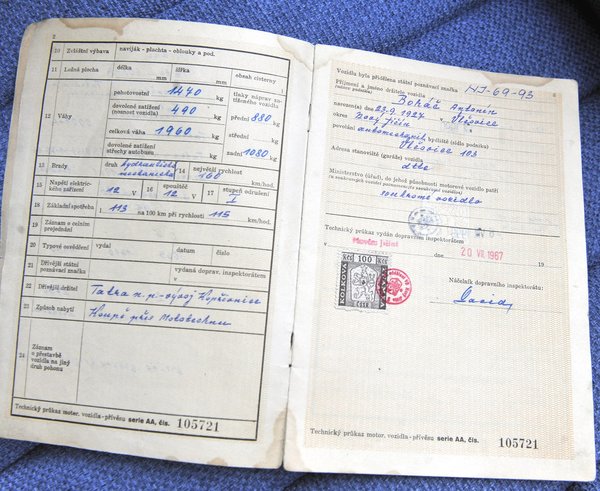 2
10 Zvláštní výbava naviják - plachta - oblouky a pod.
11 Ložná plocha délka mm šířka mm obsah cisterny
12 Váhy
pohotovostní 1470 kg
dovolené zatížení (nosnost vozidla) 490 kg
celková váha 1960 kg
dovolené zatížení střechy autobusu kg
tlaky náprav zatíženého vozidla
přední 880 kg
střední kg
zadní 1080 kg
13 Brzdy druh hydraulická mechanická 14 největší rychlost 160 km/hod.
15 Napětí elektrického zařízení 12 V 16 spouštěče 12 V 17 stupeň odrušení I
18 Základní spotřeba l 113 na 100 km při rychlosti 115 km/hod.
19 Záznam o celním projednání
20 Typové osvědčení vydal datum číslo
21 Dřívější státní poznávací značka vydaná doprav. inspektorátem v
22 Dřívější držitel Tatra n. p. - vývoj Kopřivnice
23 Způsob nabytí Koupě přes Mototechnu
24 Záznam o přestavbě vozidla na jiný druh pohonu
Technický průkaz motor. vozidla - přívěsu serie AA, čís. 105721
Vozidlu byla přidělena státní poznávací značka NJ-69-93
Příjmení a jméno držitele vozidla (název podniku) Boháč Antonín
narozen(a) dne 23.9.1927 v Vlčovice
okres Nový Jičín
povolání automechanik bydliště (sídlo podniku)
Vlčovice 103
Adresa stanoviště (garáže) vozidla
dtto
Ministerstvo (úřad), do jehož působnosti motorové vozidlo patří
soukromé vozidlo
Technický průkaz vydán dopravním inspektorátem
v Novém Jičíně dne 20 VII. 1967 19
KOLKOVÁ
Kčs 100 Kčs
ČSSR
Náčelník dopravního inspektorátu:
Technický průkaz motor. vozidla - přívěsu serie AA, čís. 105721